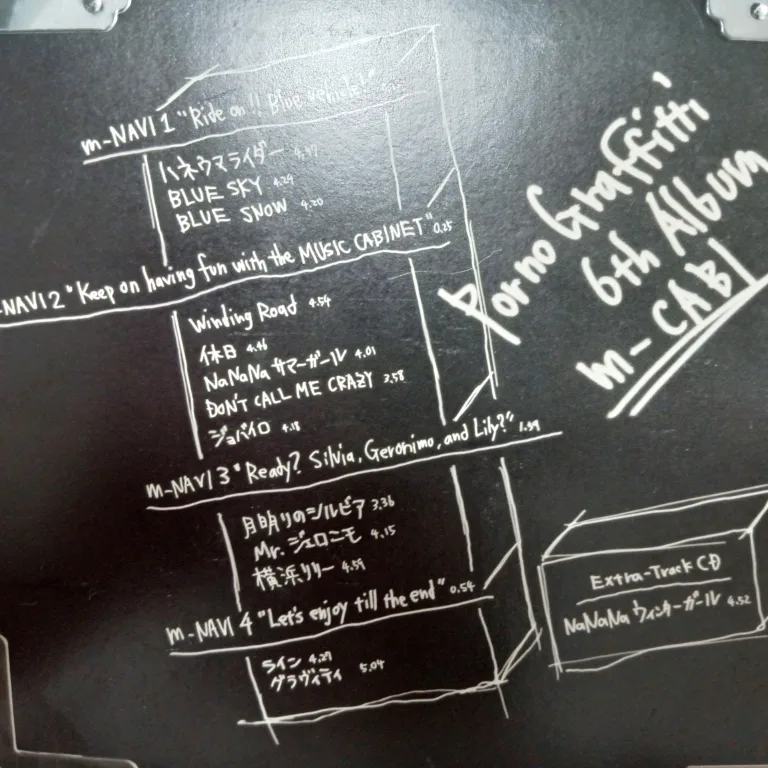 m-NAVI 1 "Ride on!! Blue vehicle!"
ハネウマライダー
BLUE SKY 4.24
BLUE SNOW 4.20
-NAVI 2 "Keep on having fun with the MUSIC CABINET" 0.25
Winding Road 4.54
休日 4.46
NaNaNa サマーガール 4.01
DON'T CALL ME CRAZY 3.58
ジョバイロ 4.18
m-NAVI 3 "Ready? Silvia, Geronimo, and Lily?" 1.39
月明りのシルビア 3.36
Mr. ジェロニモ 4.15
横浜リリー 4.59
m-NAVI 4 "Let's enjoy till the end" 0.54
ライン 4.29
グラヴィティ 5.04
Porno Graffitti
6th Album
m-CABI
Extra-Track CD
NaNaNa ウィンターガール 4.52